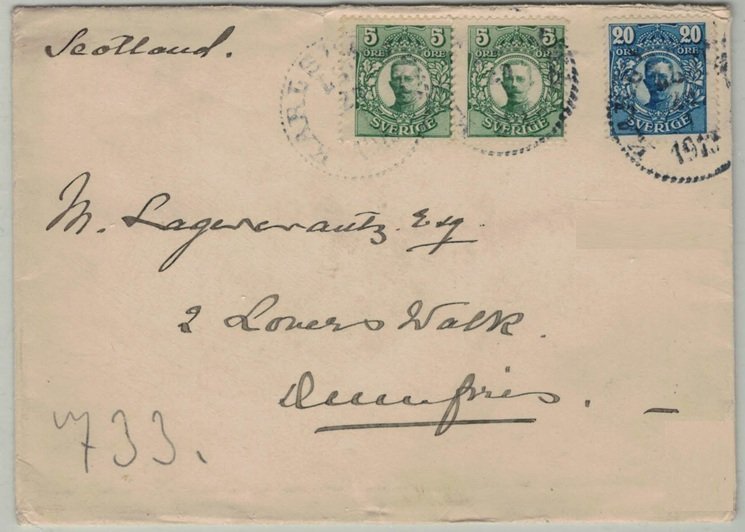 Scotland.
5 5
ÖRE ÖRE
SVERIGE
5 5
ÖRE ÖRE
SVERIGE
20 20
ÖRE ÖRE
SVERIGE
1913
M. Lagercrantz Esq.
2 Lovers Walk.
Dumfries.
733.